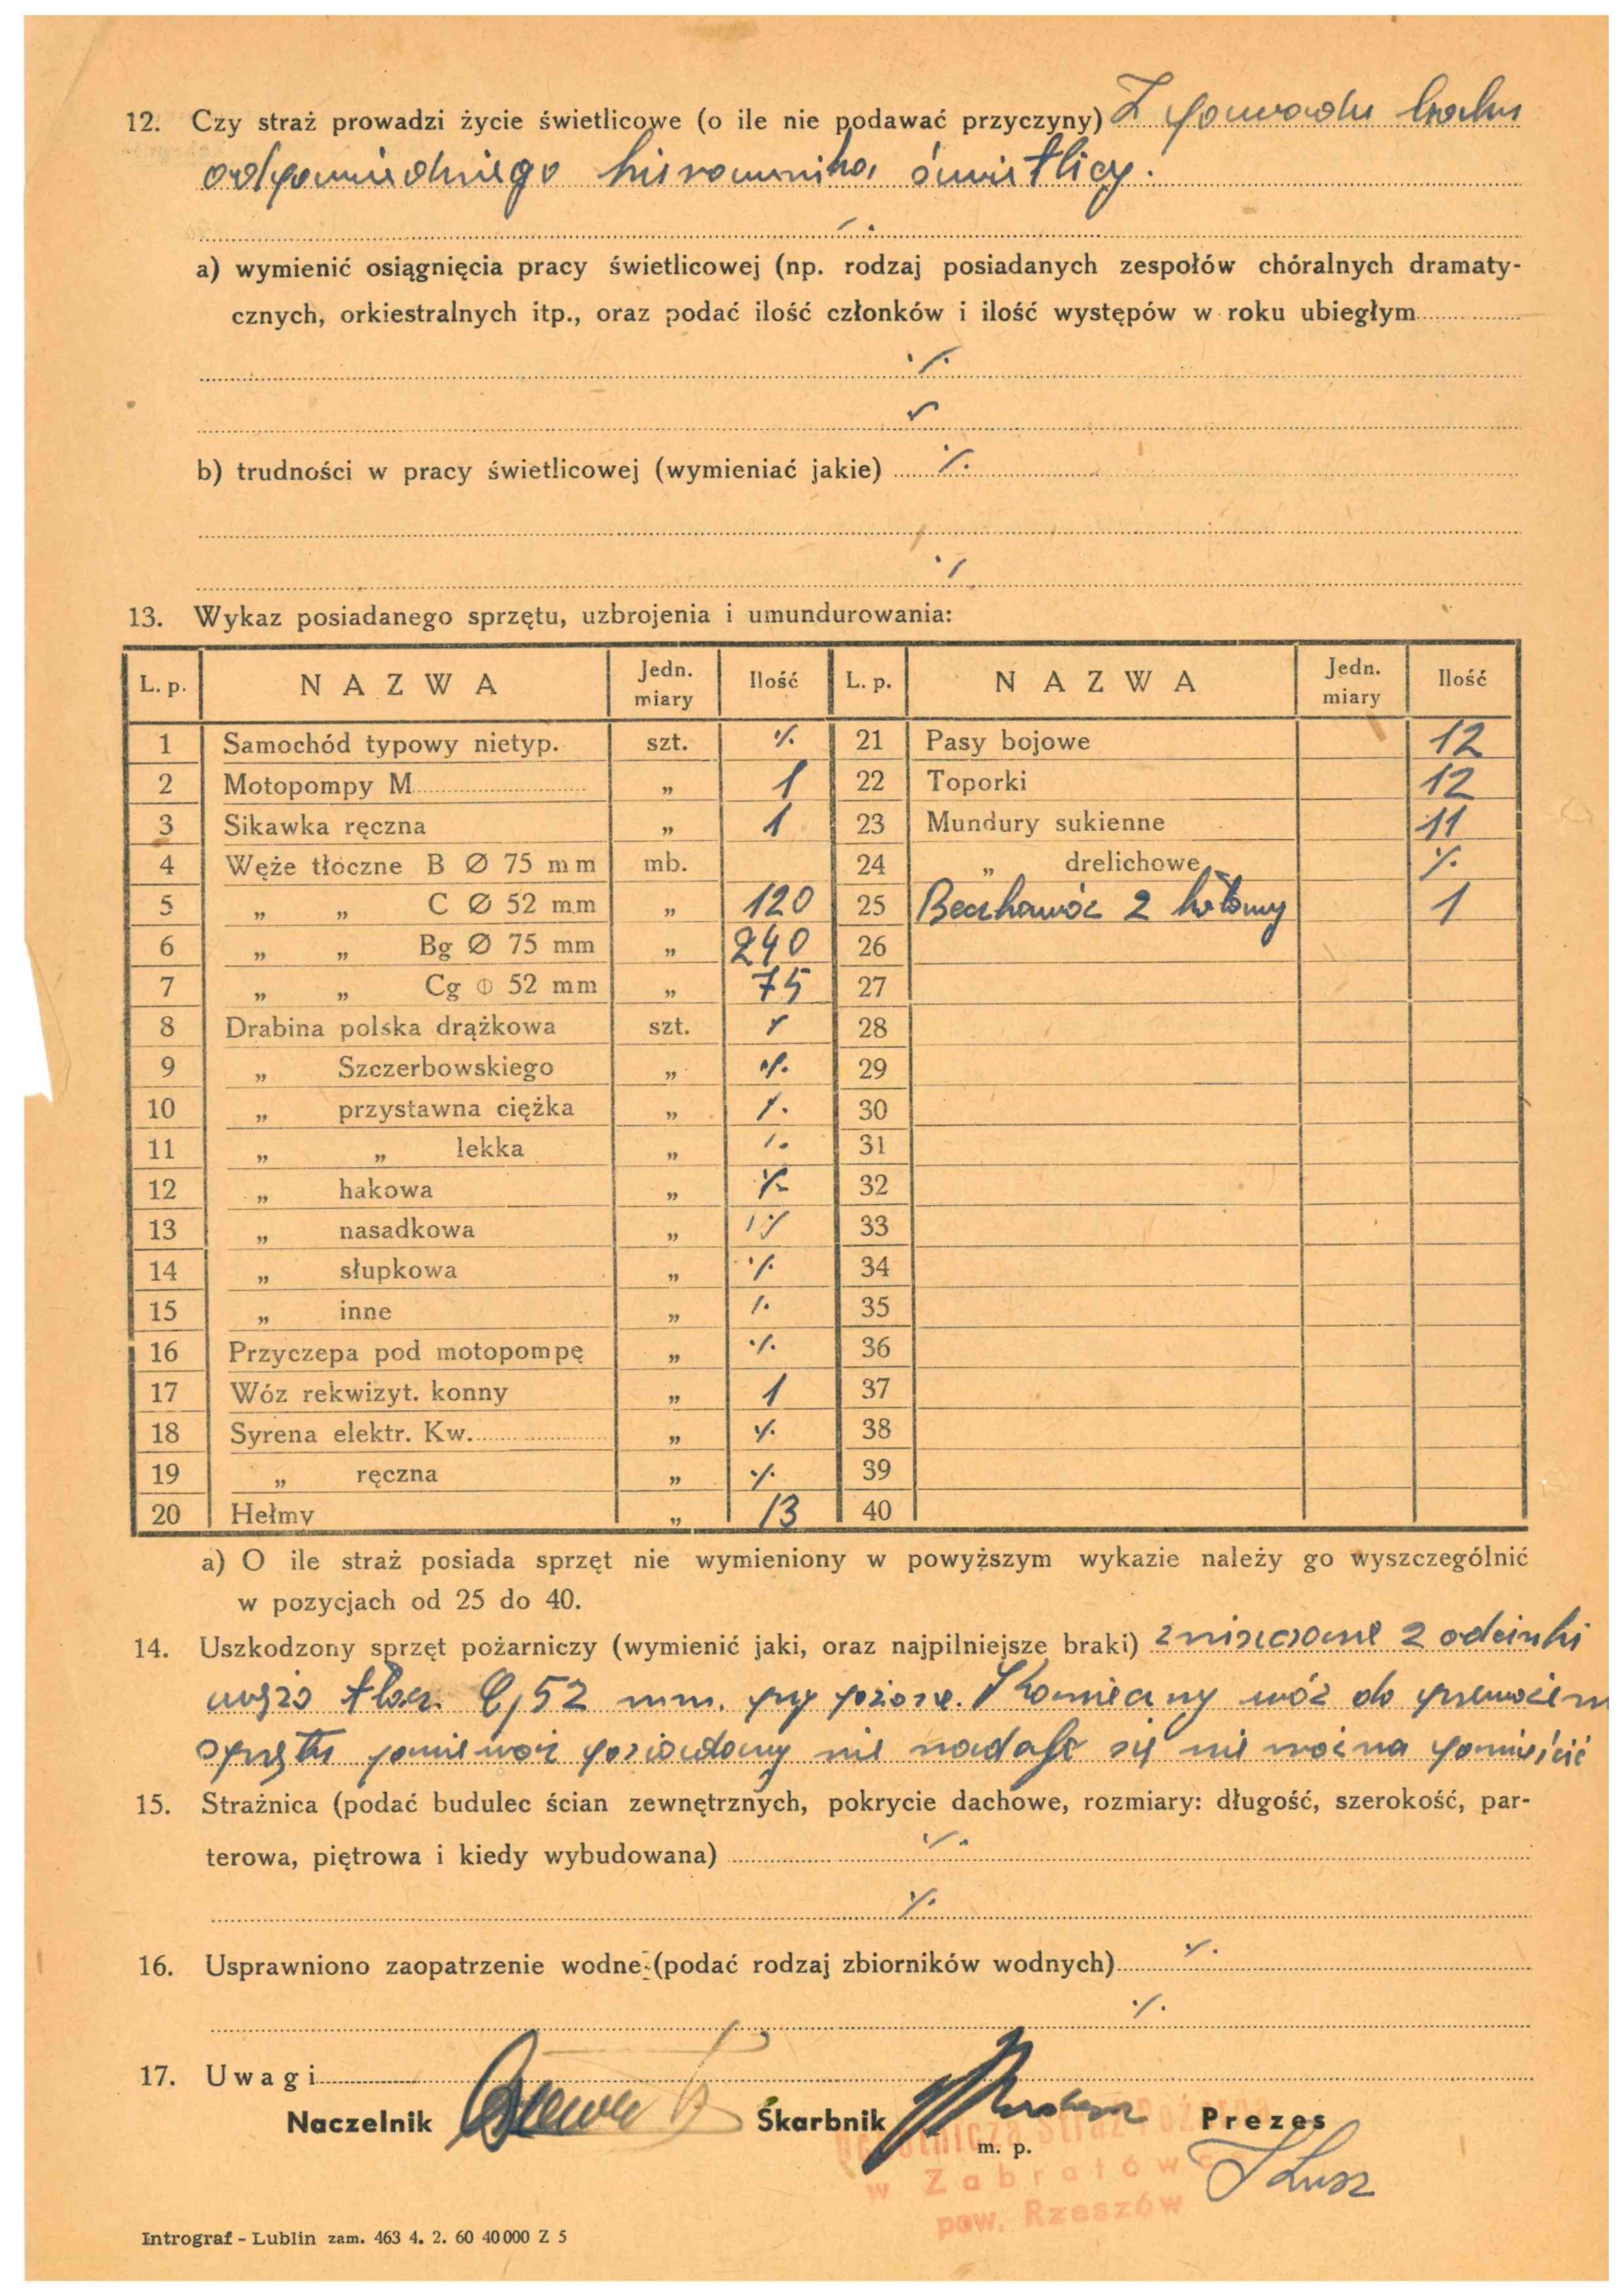 12. Czy straż prowadzi życie świetlicowe (o ile nie podawać przyczyny) Z powodu braku
odpowiedniego kierownika świetlicy.
a) wymienić osiągnięcia pracy świetlicowej (np. rodzaj posiadanych zespołów chóralnych dramaty-
cznych, orkiestralnych itp., oraz podać ilość członków i ilość występów w roku ubiegłym
b) trudności w pracy świetlicowej (wymieniać jakie)
13. Wykaz posiadanego sprzętu, uzbrojenia i umundurowania:
L. p. NAZWA Jedn. miary Ilość L. p. NAZWA Jedn. miary Ilość
1 Samochód typowy nietyp. szt. ·/. 21 Pasy bojowe 12
2 Motopompy M „ 1 22 Toporki 12
3 Sikawka ręczna „ 1 23 Mundury sukienne 11
4 Węże tłoczne B Ø 75 mm mb. 24 „ drelichowe ·/.
5 „ „ C Ø 52 mm „ 120 25 Beczkowóz 2 kołowy 1
6 „ „ Bg Ø 75 mm „ 240 26
7 „ „ Cg Φ 52 mm „ 75 27
8 Drabina polska drążkowa szt. 28
9 „ Szczerbowskiego „ ·/. 29
10 „ przystawna ciężka „ /. 30
11 „ „ lekka „ /. 31
12 „ hakowa „ ·/. 32
13 „ nasadkowa „ 33
14 „ słupkowa „ ·/. 34
15 „ inne „ /. 35
16 Przyczepa pod motopompę „ ·/. 36
17 Wóz rekwizyt. konny „ 1 37
18 Syrena elektr. Kw. „ ·/. 38
19 „ ręczna „ ·/. 39
20 Hełmy „ 13 40
a) O ile straż posiada sprzęt nie wymieniony w powyższym wykazie należy go wyszczególnić
w pozycjach od 25 do 40.
14. Uszkodzony sprzęt pożarniczy (wymienić jaki, oraz najpilniejsze braki) zniszczone 2 odcinki
węża tłocz. 52 mm. przy pożarze. Konieczny wóz do
sprzętu ponieważ posiadany nie nadaje się nie można pomieścić
15. Strażnica (podać budulec ścian zewnętrznych, pokrycie dachowe, rozmiary: długość, szerokość, par-
terowa, piętrowa i kiedy wybudowana) ·/.
·/.
16. Usprawniono zaopatrzenie wodne (podać rodzaj zbiorników wodnych) ·/.
·/.
17. Uwagi
Naczelnik Skarbnik Prezes
m. p.
Ochotnicza Straż Pożarna
w Zabratówce
pow. Rzeszów
Intrograf - Lublin zam. 463 4. 2. 60 40000 Z 5